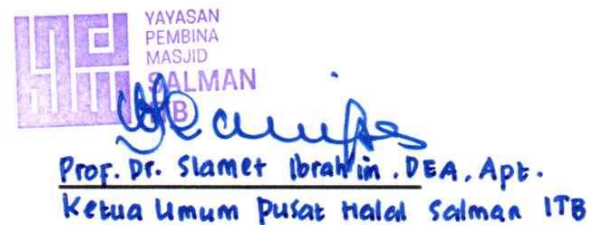 YAYASAN
PEMBINA
MASJID
SALMAN
ITB
Prof. Dr. Slamet Ibrahim . DEA, Apt.
Ketua Umum Pusat Halal Salman ITB